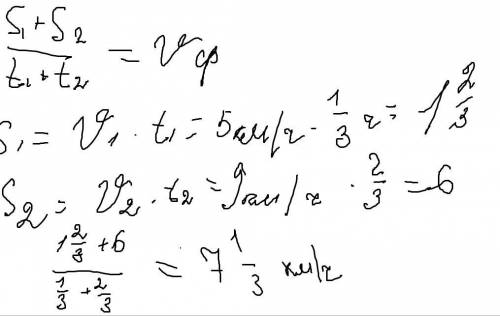 (S₁ + S₂)/(t₁ + t₂) = Vф
S₁ = V₁ · t₁ = 5 км/ч · 1/3 ч = 1 2/3
S₂ = V₂ · t₂ = 9 км/ч · 2/3 = 6
(1 2/3 + 6)/(1/3 + 2/3) = 7 1/3 км/ч